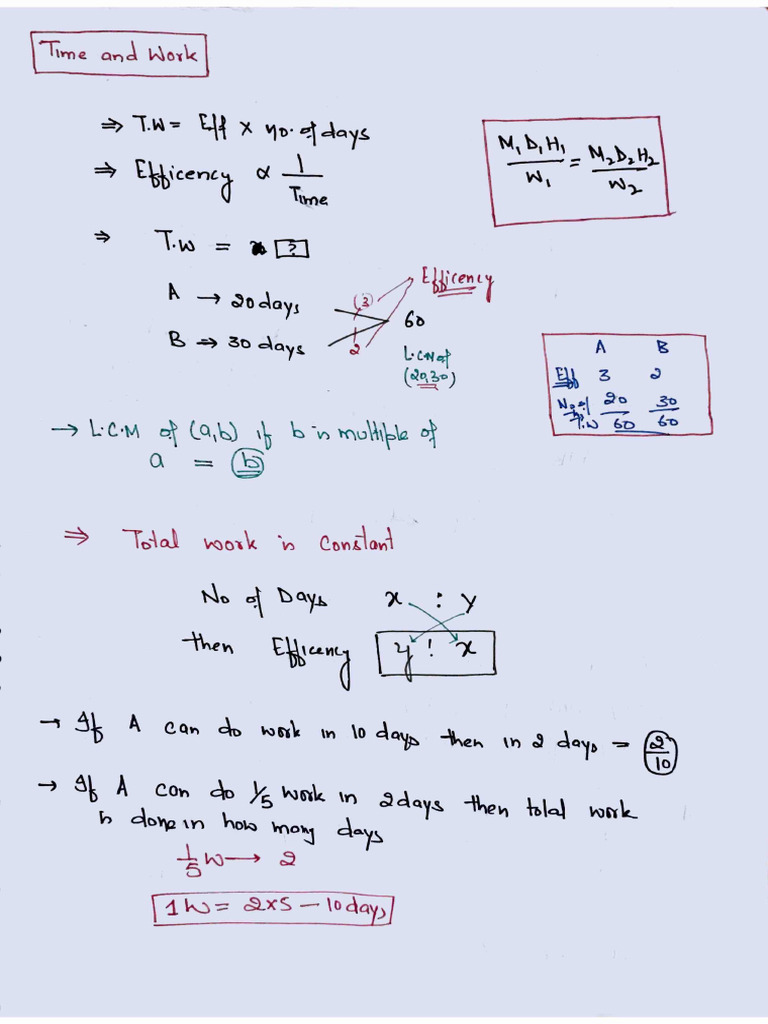 Time and Work
⇒ T.W = Eff x no. of days
⇒ Efficency ∝ 1/Time
M₁D₁H₁/W₁ = M₂D₂H₂/W₂
⇒ T.W = ?
A → 20 days
B ⇒ 30 days
(3)
2
60
Efficency
L.C.M of
(20,30)
A B
Eff 3 2
No of 20 30
T.W 60 60
→ L.C.M of (a,b) if b is multiple of
a = b
⇒ Total work is constant
No of Days x : y
then Efficency y : x
→ If A can do work in 10 days then in 2 days = 2/10
→ If A can do 1/5 work in 2 days then total work
is done in how many days
1/5 W → 2
1 W = 2x5 - 10 days